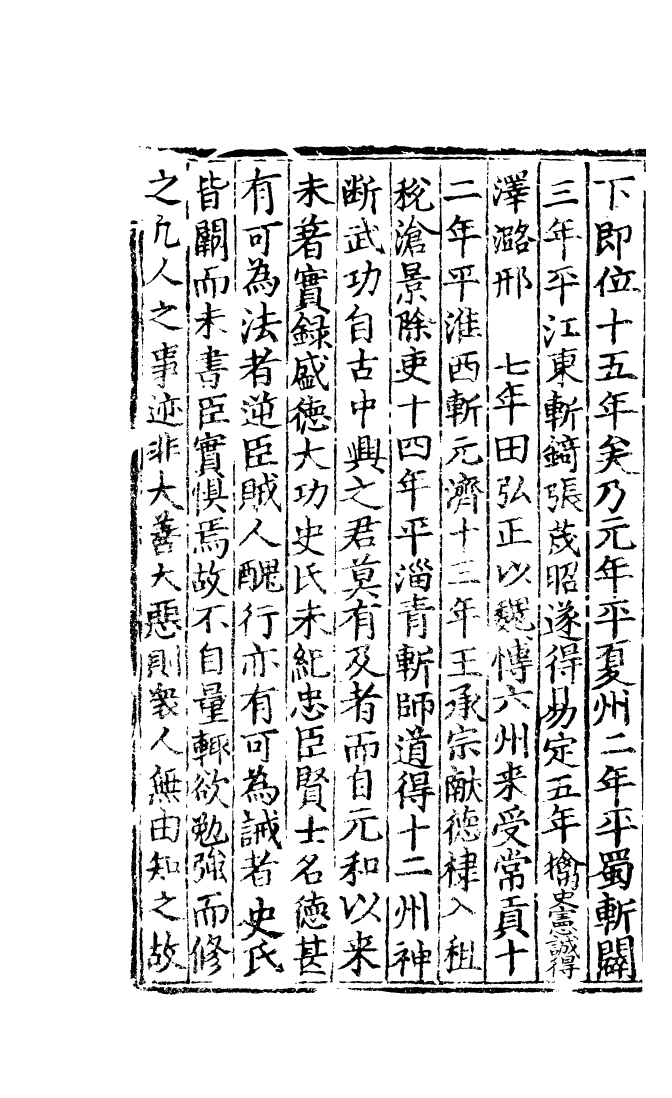 下即位十五年矣乃元年平夏州二年平蜀斬闢
三年平江東斬錡張茂昭遂得易定五年擒史憲誠得
澤潞邢　七年田弘正以魏愽六州来受常貢十
二年平淮西斬元濟十三年王承宗献徳棣入租
稅滄景除吏十四年平淄青斬師道得十二州神
断武功自古中興之君莫有及者而自元和以来
未著實録盛徳大功史氏未紀忠臣賢士名徳甚
有可為法者逆臣賊人醜行亦有可為誡者史氏
皆闕而未書臣實惧焉故不自量輙欲勉強而修
之凡人之事迹非大善大惡則衆人無由知之故